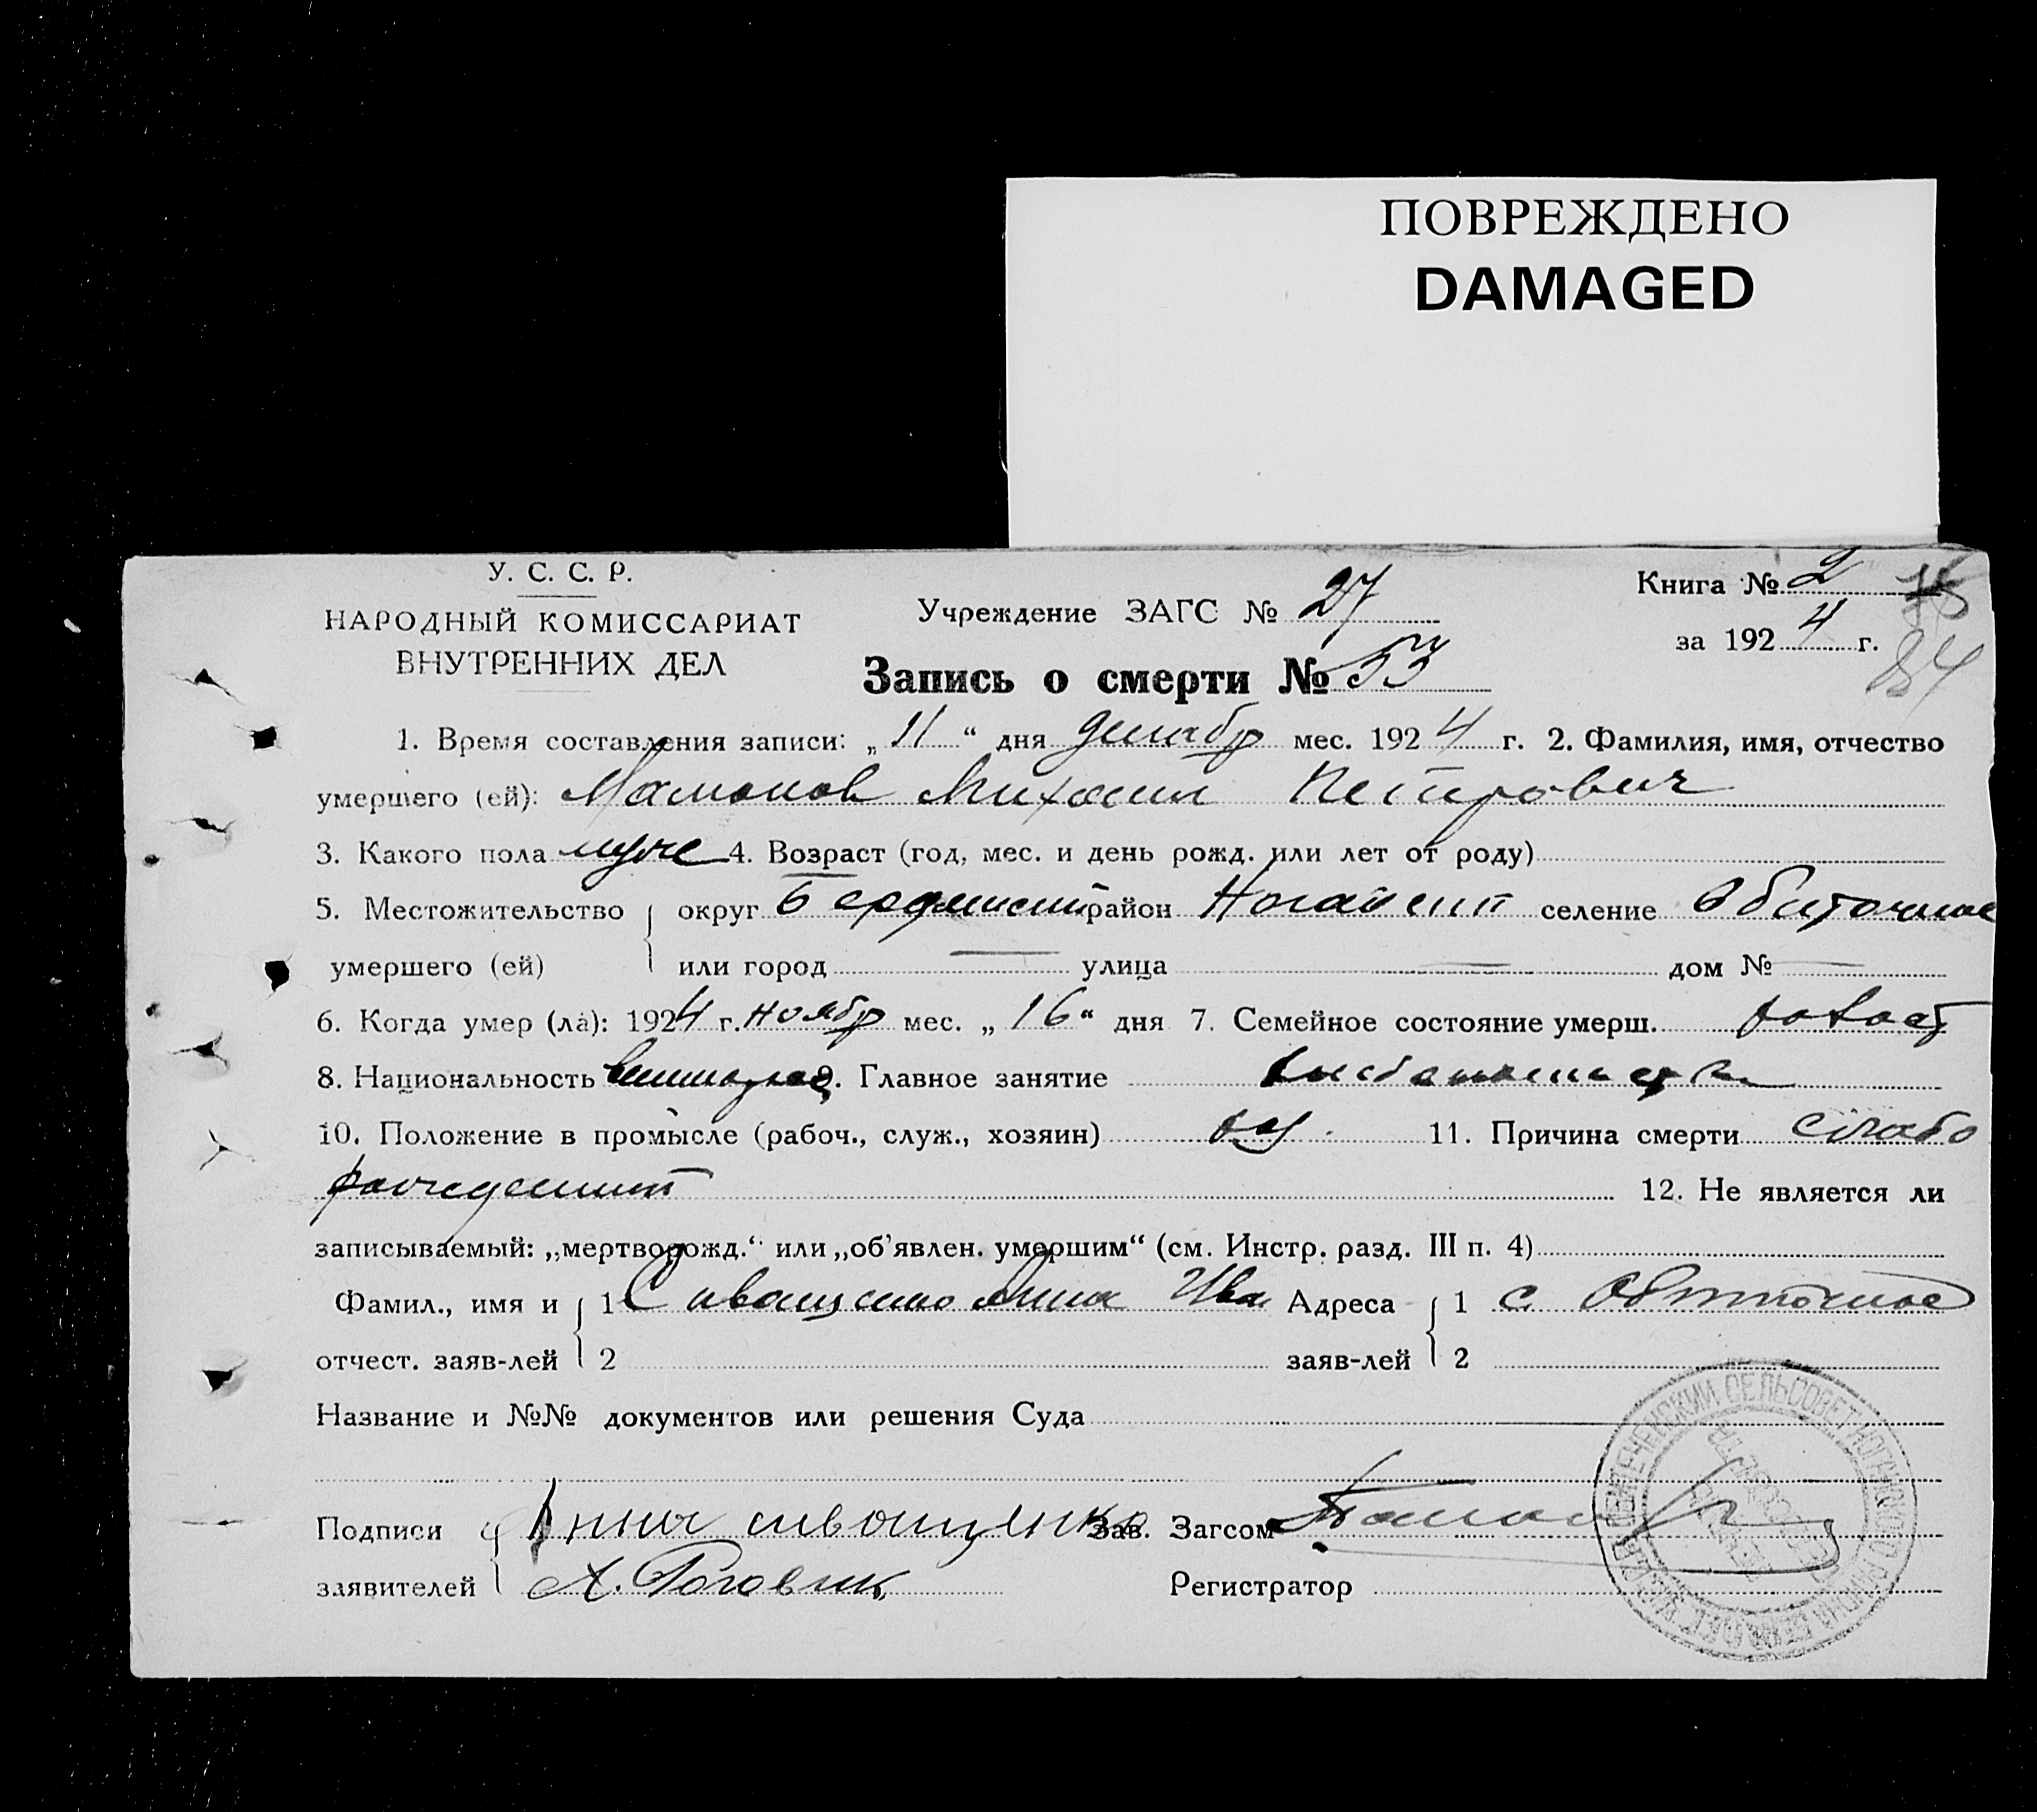 ПОВРЕЖДЕНО
DAMAGED
У. С. С. Р.
НАРОДНЫЙ КОМИССАРИАТ
ВНУТРЕННИХ ДЕЛ
Учреждение ЗАГС № 27
Книга № 2
за 1924 г.
84
Запись о смерти № 53
1. Время составления записи: „11“ дня декабр мес. 1924 г. 2. Фамилия, имя, отчество
умершего (ей): Мамонов Михаил Петрович
3. Какого пола муж 4. Возраст (год, мес. и день рожд. или лет от роду)
5. Местожительство округ Бердянский район Ногайский селение Обиточное
умершего (ей) или город — улица — дом № —
6. Когда умер (ла): 1924 г. ноябр мес. „16“ дня 7. Семейное состояние умерш.
8. Национальность 9. Главное занятие
10. Положение в промысле (рабоч., служ., хозяин) 11. Причина смерти слабо
рожденный
12. Не является ли
записываемый: „мертворожд.“ или „об'явлен. умершим“ (см. Инстр. разд. III п. 4)
Фамил., имя и 1 Сиващенко Анна Ива Адреса 1 с. Обиточное
отчест. заяв-лей 2 заяв-лей 2
Название и №№ документов или решения Суда
Подписи Анна сиващенко Зав. Загсом
заявителей Х. Роговик Регистратор